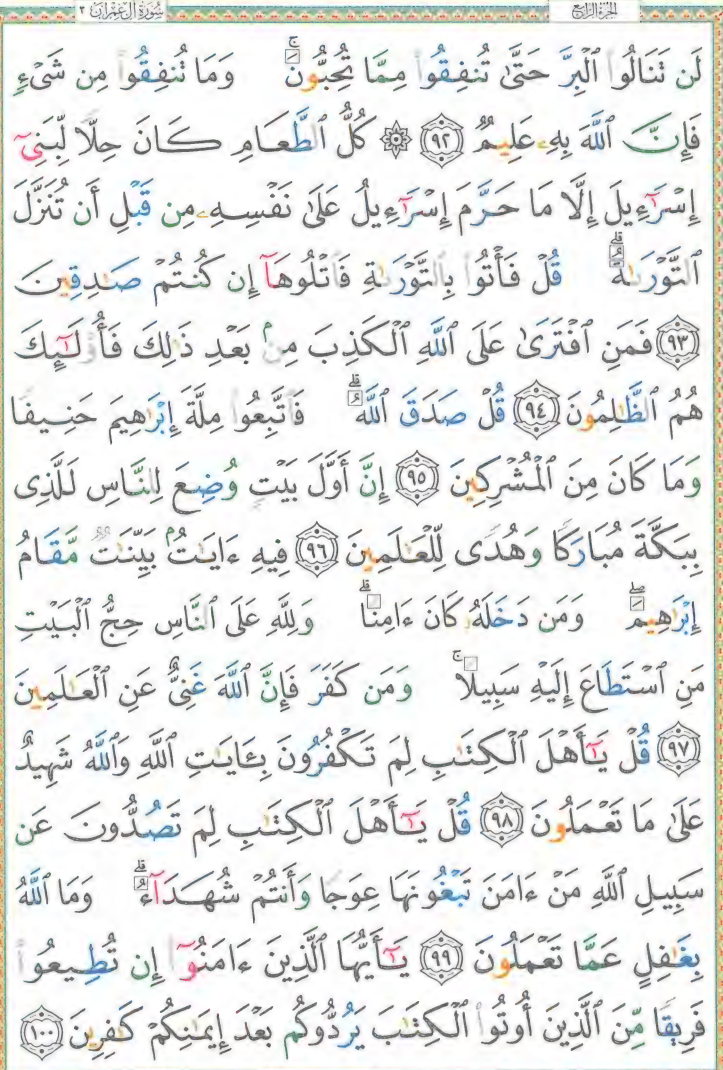 الجزء الرابع
سورة آل عمران ٣
لَن تَنَالُوا۟ ٱلْبِرَّ حَتَّىٰ تُنفِقُوا۟ مِمَّا تُحِبُّونَ ۚ وَمَا تُنفِقُوا۟ مِن شَىْءٍ
فَإِنَّ ٱللَّهَ بِهِۦ عَلِيمٌ ﴿٩٢﴾ ۞ كُلُّ ٱلطَّعَامِ كَانَ حِلًّا لِّبَنِىٓ
إِسْرَٰٓءِيلَ إِلَّا مَا حَرَّمَ إِسْرَٰٓءِيلُ عَلَىٰ نَفْسِهِۦ مِن قَبْلِ أَن تُنَزَّلَ
ٱلتَّوْرَىٰةُ ۗ قُلْ فَأْتُوا۟ بِٱلتَّوْرَىٰةِ فَٱتْلُوهَآ إِن كُنتُمْ صَٰدِقِينَ
﴿٩٣﴾ فَمَنِ ٱفْتَرَىٰ عَلَى ٱللَّهِ ٱلْكَذِبَ مِنۢ بَعْدِ ذَٰلِكَ فَأُو۟لَٰٓئِكَ
هُمُ ٱلظَّٰلِمُونَ ﴿٩٤﴾ قُلْ صَدَقَ ٱللَّهُ ۗ فَٱتَّبِعُوا۟ مِلَّةَ إِبْرَٰهِيمَ حَنِيفًا
وَمَا كَانَ مِنَ ٱلْمُشْرِكِينَ ﴿٩٥﴾ إِنَّ أَوَّلَ بَيْتٍ وُضِعَ لِلنَّاسِ لَلَّذِى
بِبَكَّةَ مُبَارَكًا وَهُدًى لِّلْعَٰلَمِينَ ﴿٩٦﴾ فِيهِ ءَايَٰتٌۢ بَيِّنَٰتٌ مَّقَامُ
إِبْرَٰهِيمَ ۖ وَمَن دَخَلَهُۥ كَانَ ءَامِنًا ۗ وَلِلَّهِ عَلَى ٱلنَّاسِ حِجُّ ٱلْبَيْتِ
مَنِ ٱسْتَطَاعَ إِلَيْهِ سَبِيلًا ۚ وَمَن كَفَرَ فَإِنَّ ٱللَّهَ غَنِىٌّ عَنِ ٱلْعَٰلَمِينَ
﴿٩٧﴾ قُلْ يَٰٓأَهْلَ ٱلْكِتَٰبِ لِمَ تَكْفُرُونَ بِـَٔايَٰتِ ٱللَّهِ وَٱللَّهُ شَهِيدٌ
عَلَىٰ مَا تَعْمَلُونَ ﴿٩٨﴾ قُلْ يَٰٓأَهْلَ ٱلْكِتَٰبِ لِمَ تَصُدُّونَ عَن
سَبِيلِ ٱللَّهِ مَنْ ءَامَنَ تَبْغُونَهَا عِوَجًا وَأَنتُمْ شُهَدَآءُ ۗ وَمَا ٱللَّهُ
بِغَٰفِلٍ عَمَّا تَعْمَلُونَ ﴿٩٩﴾ يَٰٓأَيُّهَا ٱلَّذِينَ ءَامَنُوٓا۟ إِن تُطِيعُوا۟
فَرِيقًا مِّنَ ٱلَّذِينَ أُوتُوا۟ ٱلْكِتَٰبَ يَرُدُّوكُم بَعْدَ إِيمَٰنِكُمْ كَٰفِرِينَ ﴿١٠٠﴾